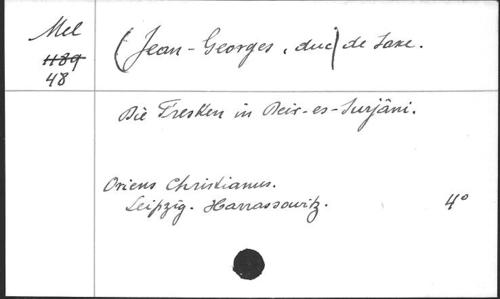 Mel
1189
48
(Jean-Georges, duc) de Saxe.
Die Fresken in Deir-es-Surjâni.
Oriens Christianus.
Leipzig. Harrassowitz. 4°